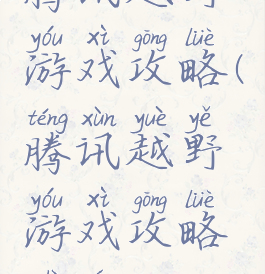 腾讯越野
yóu xì gōng lüè
游戏攻略(
téng xùn yuè yě
腾讯越野
yóu xì gōng lüè
游戏攻略